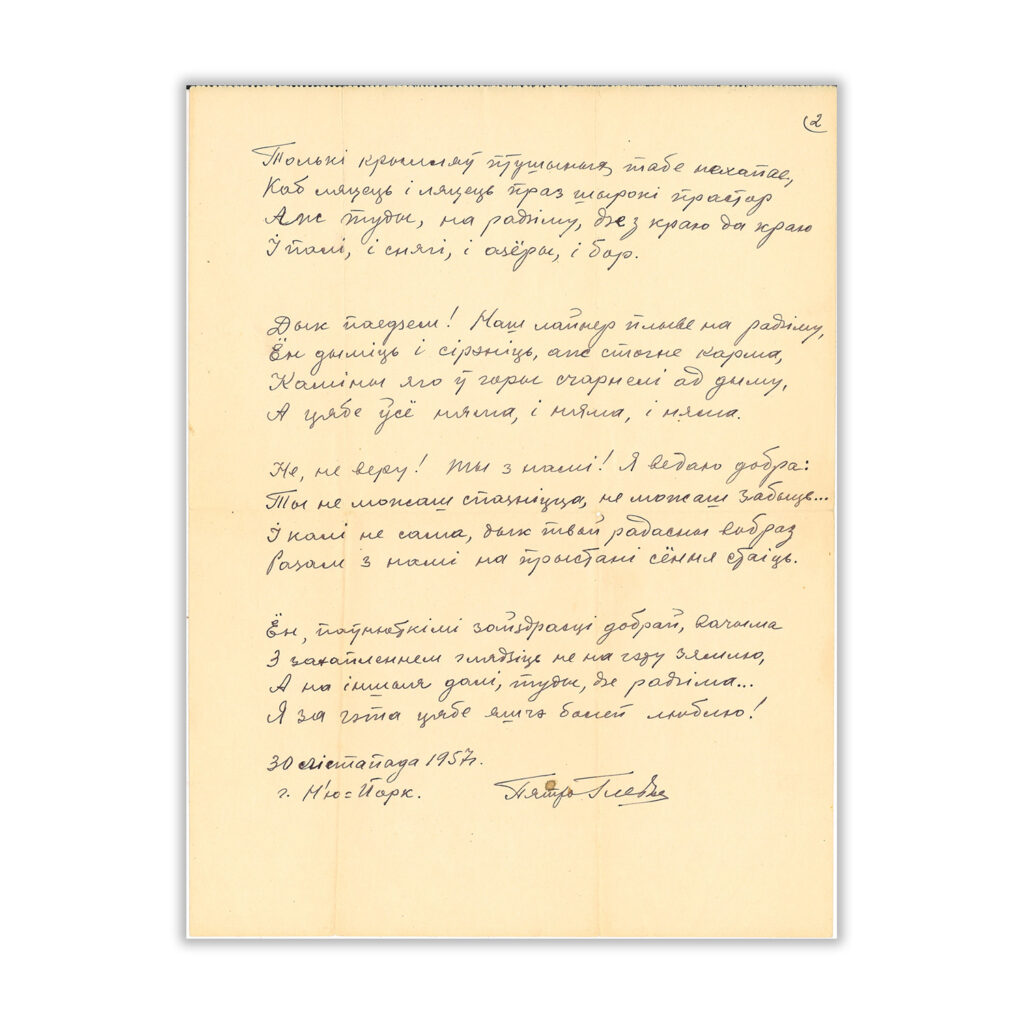 2
Толькі крылляў птушыных табе нехапае,
Каб ляцець і ляцець праз шырокі прастор
Аж туды, на радзіму, дзе з краю да краю
І палі, і снягі, і азёры, і бор.
Дык паедзем! Наш лайнер плыве на радзіму,
Ён дыміць і сірэніць, аж стогне карма,
Каміны яго ў горы счарнелі ад дыму,
А цябе ўсё няма, і няма, і няма.
Не, не веру! Ты з намі! Я ведаю добра:
Ты не можаш спазніцца, не можаш забыць...
І калі не сама, дык твой радасны вобраз
Разам з намі на прыстані сёння стаіць.
Ён, поўнюткімі зайздрасці добрай, вачыма
З захапленнем глядзіць не на гэту зямлю,
А на іншыя далі, туды, дзе радзіма...
Я за гэта цябе яшчэ болей люблю!
30 лістапада 1957г.
г. Н'ю=Йорк. Пятро Глебка